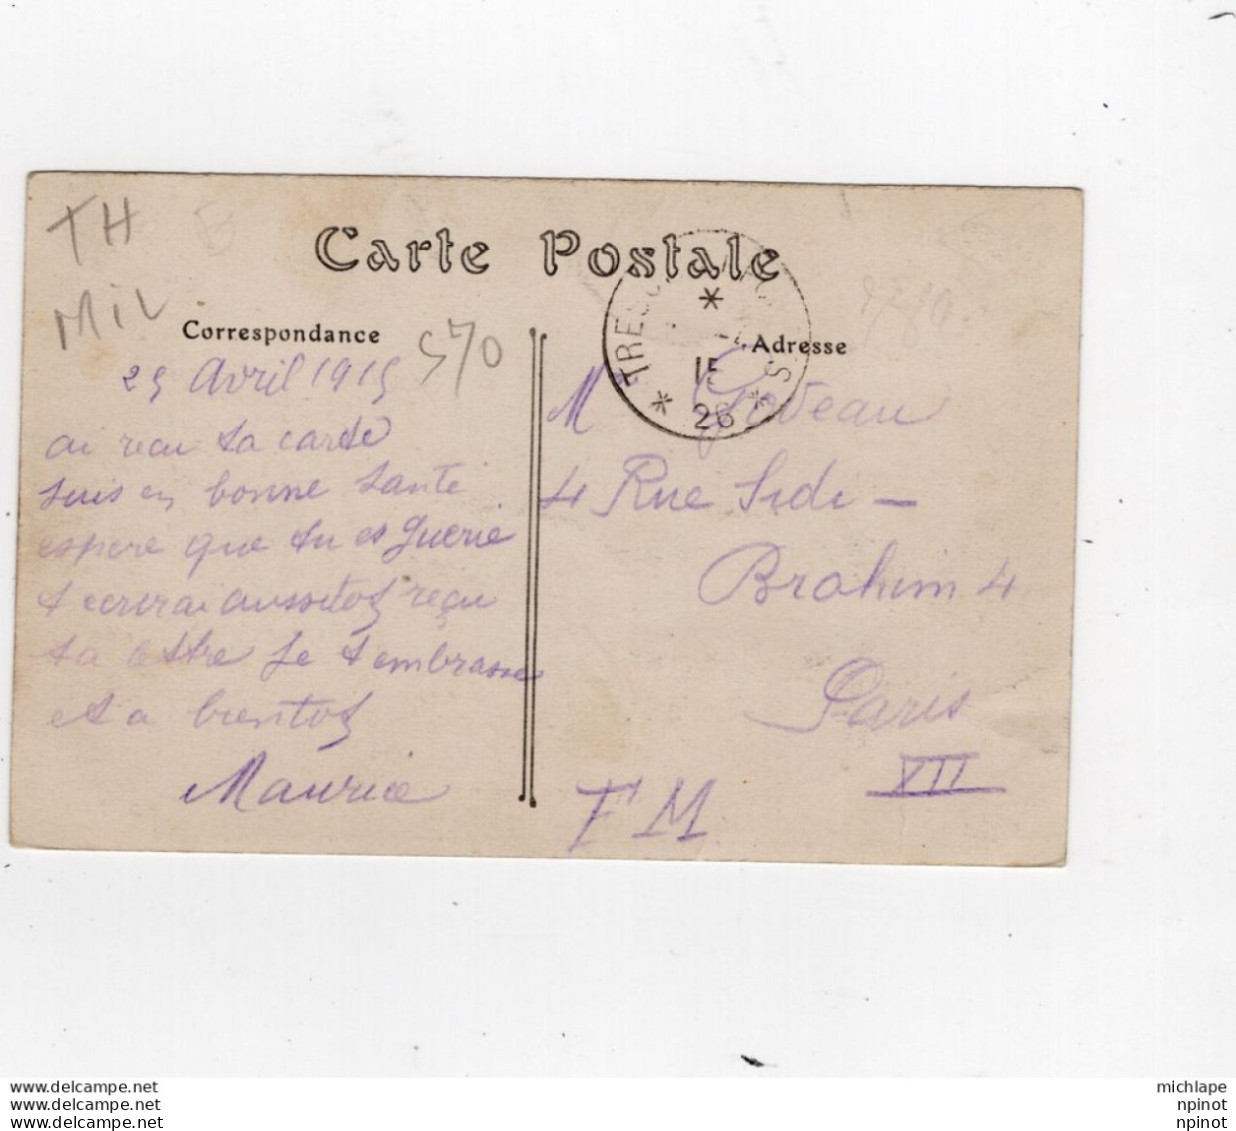 TH
MIL
Carte Postale
Correspondance
570
Adresse
TRESOR
*
15
* 26 *
25 Avril 1915
ai recu ta carte
suis en bonne santé
espere que tu es guerie
t ecrirai aussitot reçu
ta lettre je t embrasse
et a bientot
Maurice
M
4 Rue Sidi -
Brahim 4
Paris
XII
F M
www.delcampe.net
www.delcampe.net
www.delcampe.net
michlape
npinot
npinot